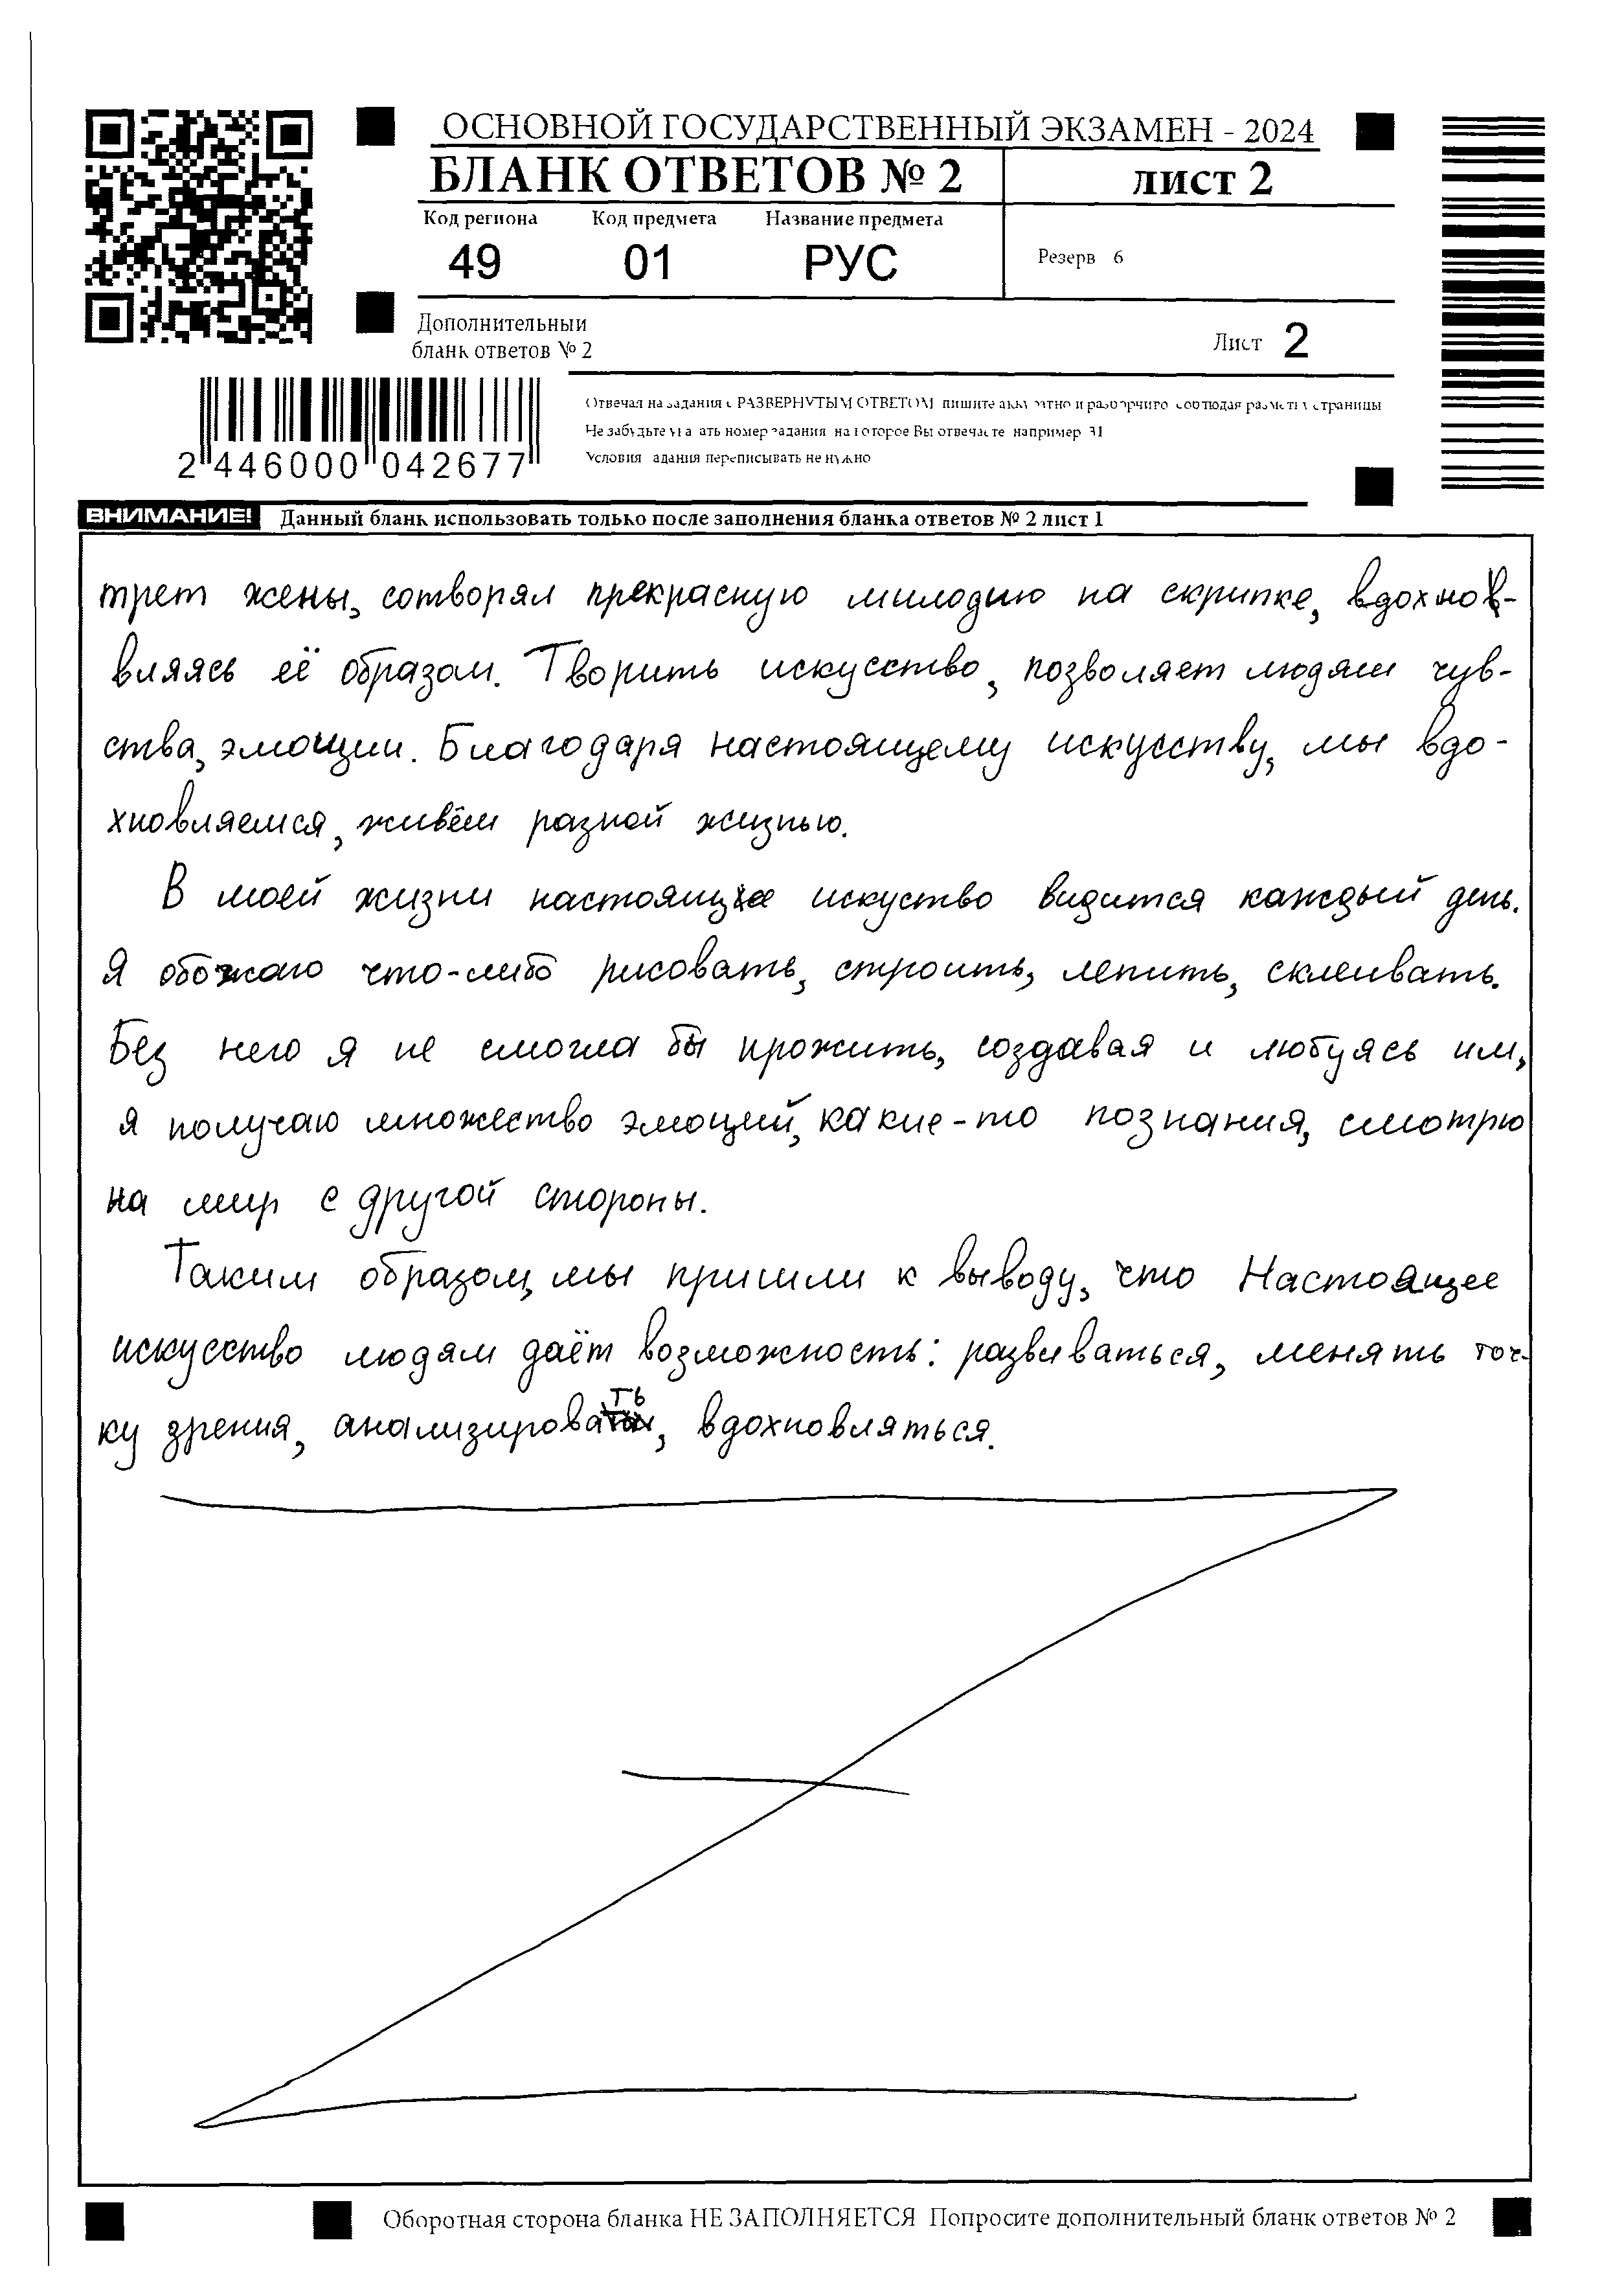 ОСНОВНОЙ ГОСУДАРСТВЕННЫЙ ЭКЗАМЕН - 2024
БЛАНК ОТВЕТОВ № 2
ЛИСТ 2
Код региона Код предмета Название предмета
49 01 РУС
Резерв 6
Дополнительный
бланк ответов № 2
Лист 2
Отвечая на задания с РАЗВЕРНУТЫМ ОТВЕТОМ пишите аккуратно и разборчиво соблюдая разметку страницы
Не забудьте указать номер задания на которое Вы отвечаете например 31
Условия задания переписывать не нужно
2 446000 042677
ВНИМАНИЕ! Данный бланк использовать только после заполнения бланка ответов № 2 лист 1
трет жены, сотворял прекрасную милодию на скрипке, вдохнов-
вляясь её образом. Творить искусство, позволяет людям чув-
ства, эмоции. Благодаря настоящему искусству, мы вдо-
хновляемся, живём разной жизнью.
В моей жизни настоящее искуство видится каждый день.
Я обожаю что-либо рисовать, строить, лепить, склеивать.
Без него я не смогла бы прожить, создавая и любуясь им,
я получаю множество эмоций, какие-то познания, смотрю
на мир с другой стороны.
Таким образом, мы пришли к выводу, что Настоящее
искусство людям даёт возможность: развиваться, менять точ-
ку зрения, анализировать, вдохновляться.
Оборотная сторона бланка НЕ ЗАПОЛНЯЕТСЯ Попросите дополнительный бланк ответов № 2